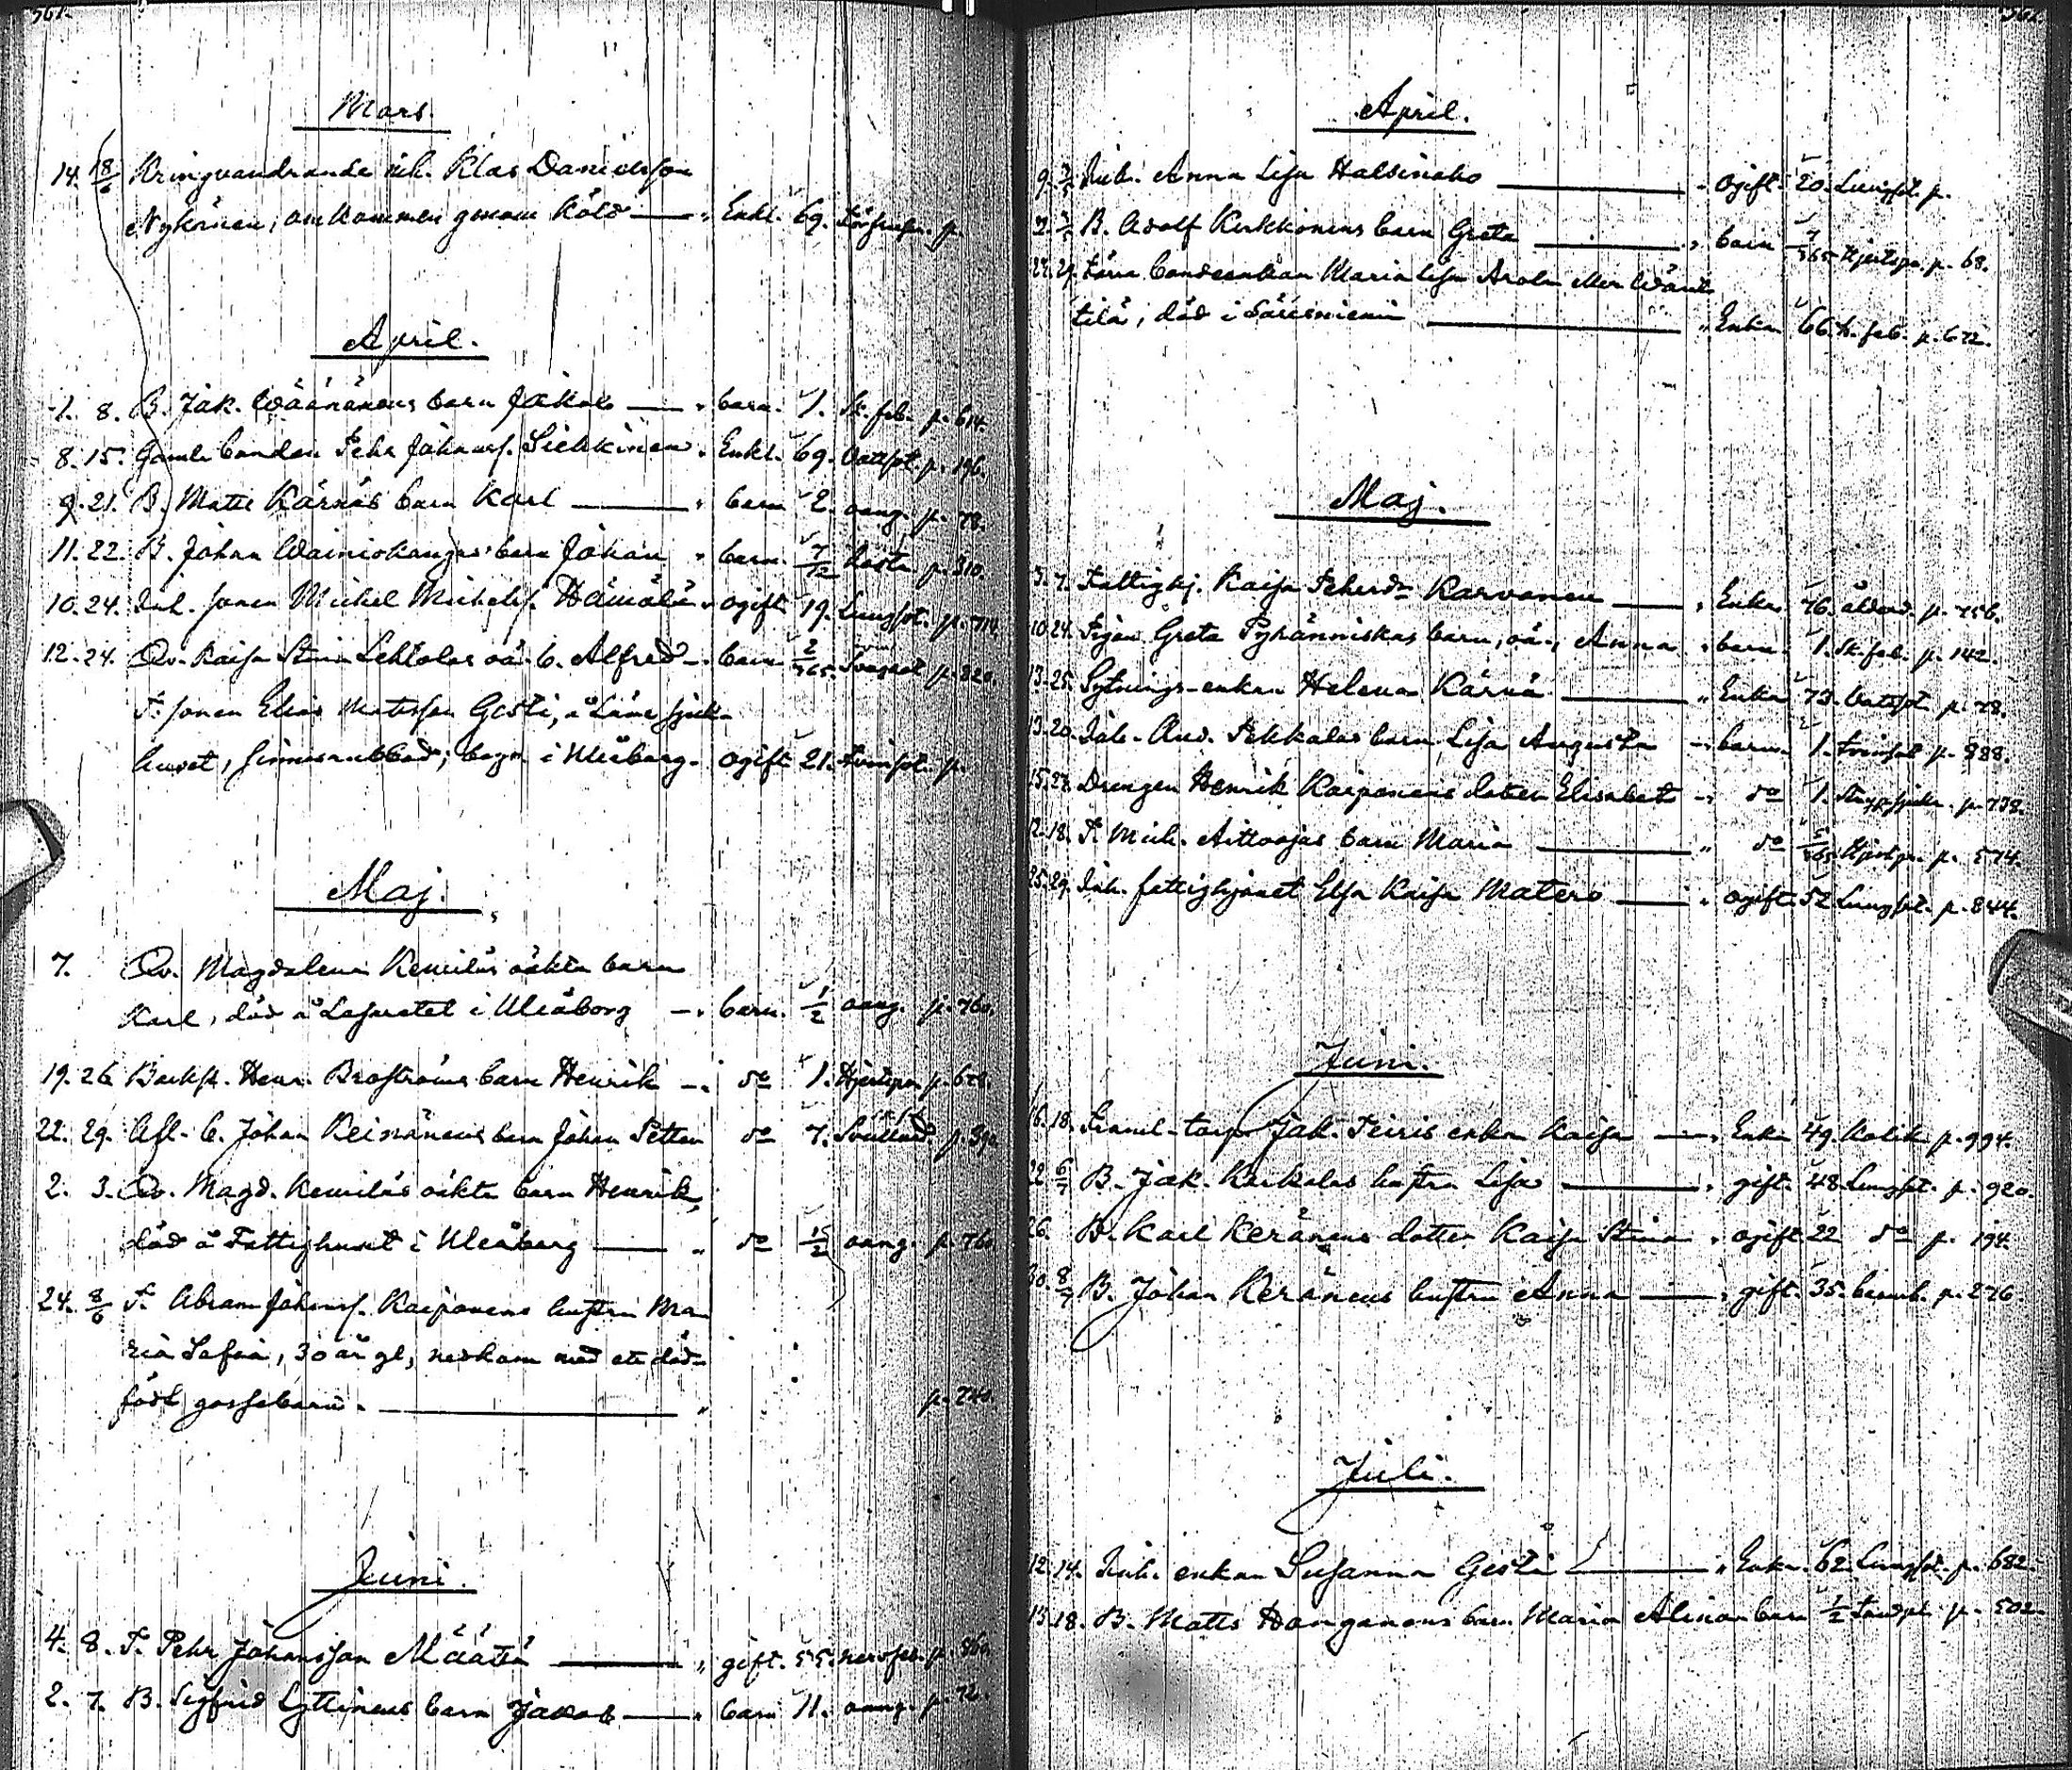 561.
Mars.
14. 18/6 Kringvandrande inh. Klas Danielsson
Nykänen, omkommen genom köld — " Enkl. 69. p.
April.
1. 8. B. Jak. Wäänänens barn Jakob — " barn. 1. Sk. feb. p. 614.
8. 15. Gamle bonden Pehr Johanss. Siekkinen " Enkl. 69. Vattsot. p. 196.
9. 21. B. Matts Kärnäs barn Karl — " barn 2. oang. p. 78.
11. 22. B. Johan Wainiokangas barn Johan " barn. 7/12 hosta p. 310.
10. 24. Inh. sonen Michel Michelss. Hämälä " ogift 19. Lungsot. p. 714.
12. 24. Qv. Kaisa Stina Lehtolas oä. b. Alfred — " barn 2/365. p. 820.
T. sonen Elias Matsson Gesti, å Läns sjuk-
huset, sinnesrubbad; begr. i Uleåborg. ogift 21. Tvinsot. p.
Maj.
7. Qv. Magdalena Kemiläs oäkta barn
Karl, död å Lasarettet i Uleåborg — " barn. 1/2 oang. p. 760.
19. 26 Backst. Henr. Broströms barn Henrik — " do 1. Hjertspr. p. 678.
22. 29. Afl. b. Johan Keinänens barn Johan Petter do 7. p. 390
2. 3. Qv. Magd. Kemiläs oäkta barn Henrik,
död å Fattighuset i Uleåborg — " do 1/2 oang. p. 760
24. 8/6 T. Abram Johanss. Karjonens hustru Ma
ria Sofia, 30 år gl, nedkom med ett död-
född gossebarn. — " p. 740.
Juni.
4. 8. T. Pehr Johansson Määttä — " gift. 55. nervfeb. p. 860.
2. 7. B. Sigfrid Lyttinens barn Jakob — " barn 11. oang. p. 72.
April.
9. 3/5 Inh. Anna Lisa Halsinaho — " ogift. 20. Lungsot. p.
2. B. Adolf Kirkkonens barn Greta — " barn 7/365 Hjertspr. p. 68.
22. 29. Förra bondeenkan Maria Lisa Arola
tilä, död i Säresniemi — " Enka 66. h. feb. p. 672.
Maj.
3. 7. Fattighj. Kaisa Pehrsdr Karvonen — " Enka 76. ålderd. p. 756.
10. 24. Pigan Greta Pyhänniskas barn, oä., Anna " barn. 1. Sk. feb. p. 142.
13. 25. Sytnings-enkan Helena Kärnä — " Enka 73. Vattsot p. 78.
13. 20. Inh. And. Pekkalas barn Lisa Augusta — " barn. 1. Tvinsot p. 888.
15. 27. Drengen Henrik Karjonens dotter Elisabet — " do 1. p. 738.
12. 18. T. Mich. Aittoojas barn Maria — " do 5/365 Hjertspr. p. 574.
25. 29. Inh. fattighjonet Elsa Kaisa Matero — " ogift. 52 Lungsot. p. 844.
Juni.
16. 18. Jak. Peiris enka Kaisa — " Enk. 49. Kolik p. 994.
22 6/7 B. Jak. Kurkelas hustru Lisa — " gift. 48. Lungsot. p. 920.
26. B. Karl Keränens dotter Kaisa Stina " ogift 22 do p. 194.
30. 8/7 B. Johan Keränens hustru Anna — " gift. 35. barnb. p. 276.
Juli.
12. 14. Inh. enkan Susanna Gesti — " Enka. 62. Lungsot. p. 682.
13. 18. B. Matts Hanganens barn Maria Alina barn 1/2 p. 502.